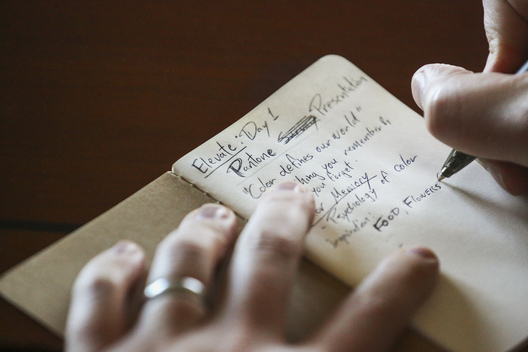 Elevate: Day 1
Pantone Presentation
"Color defines our world"
thing you remember &
you forget.
Memory
- Psychology of color
"inspiration": FOOD, FLOWERS